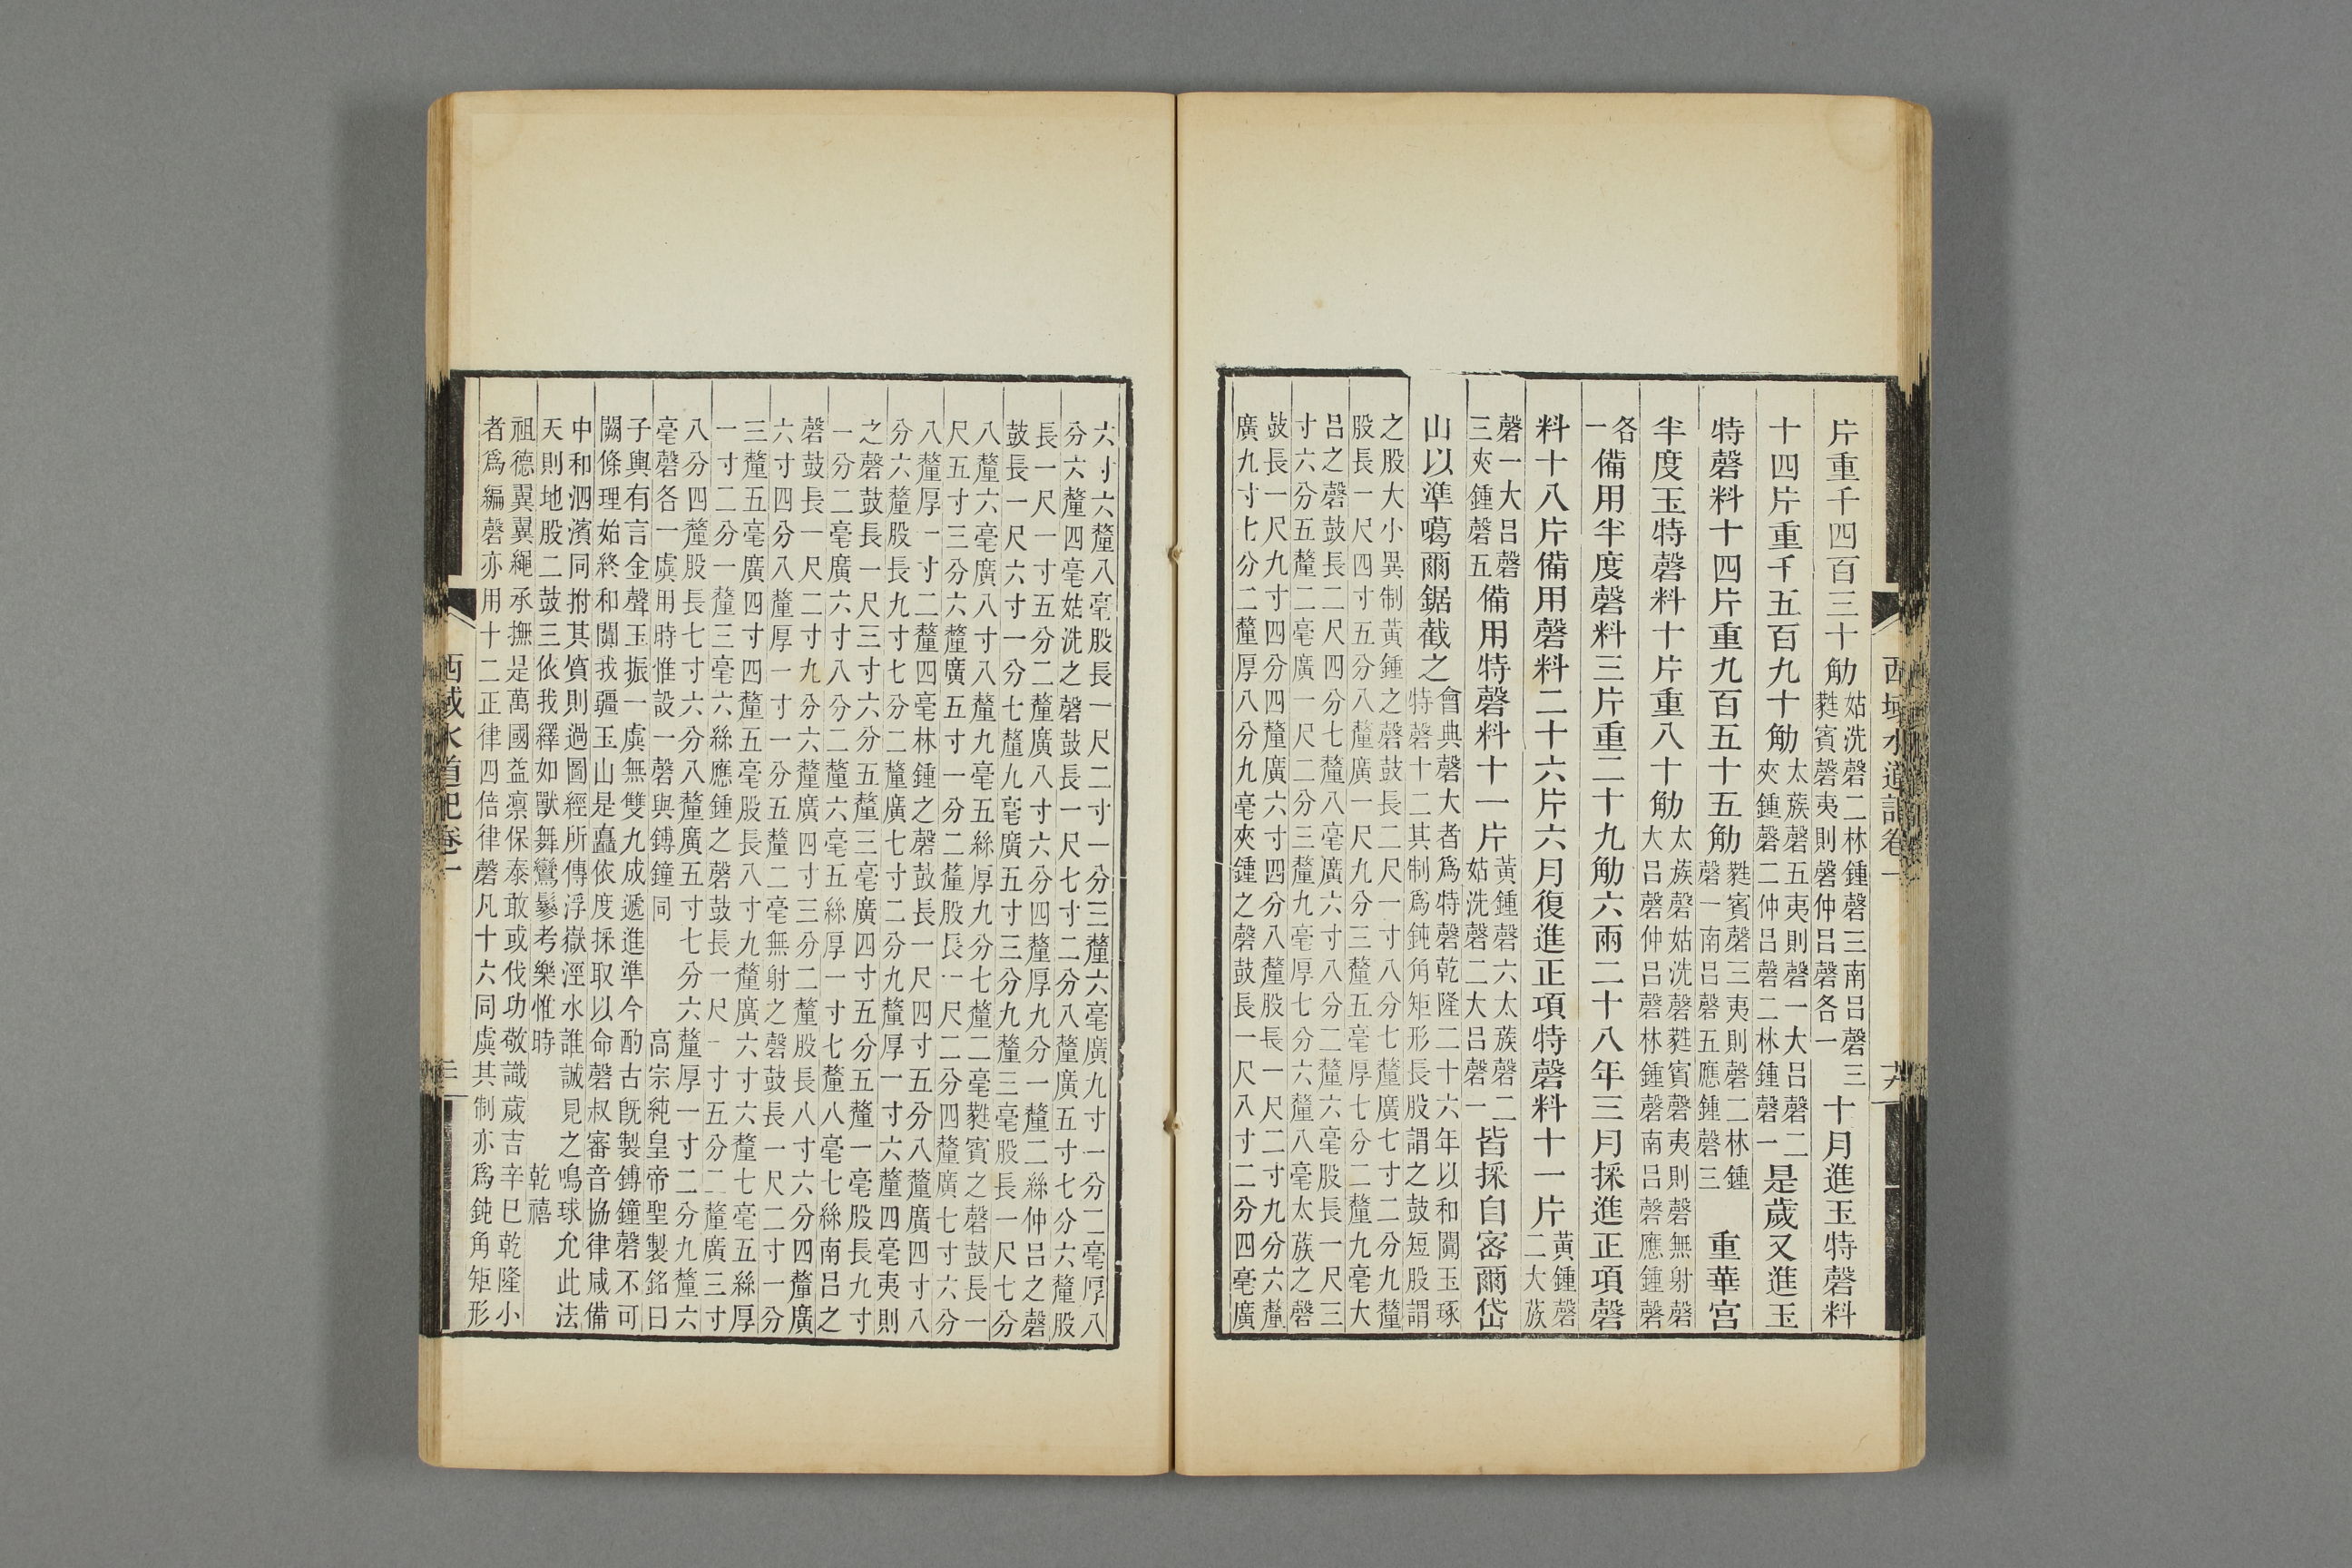 西域水道記卷一
片重千四百三十觔
姑洗磬二林鍾磬三南吕磬三
蕤賓磬夷則磬仲吕磬各一
十月進玉特磬料
十四片重千五百九十觔
太蔟磬五夷則磬一大吕磬二
夾鍾磬二仲吕磬二林鍾磬一
是歲又進玉
特磬料十四片重九百五十五觔
蕤賓磬三夷則磬二林鍾
磬一南吕磬五應鍾磬三
重華宫
半度玉特磬料十片重八十觔
太蔟磬姑洗磬蕤賓磬夷則磬無射磬
大吕磬仲吕磬林鍾磬南吕磬應鍾磬
各
一
備用半度磬料三片重二十九觔六兩二十八年三月採進正項磬
料十八片備用磬料二十六片六月復進正項特磬料十一片
黃鍾磬
二大蔟
磬一大吕磬
三夾鍾磬五
備用特磬料十一片
黃鍾磬六太蔟磬二
姑洗磬二大吕磬一
皆採自密爾岱
山以準噶爾鋸截之
會典磬大者爲特磬乾隆二十六年以和闐玉琢
特磬十二其制爲鈍角矩形長股謂之鼓短股謂
之股大小異制黃鍾之磬鼓長二尺一寸八分七釐廣七寸二分九釐
股長一尺四寸五分八釐廣一尺九分三釐五毫厚七分二釐九毫大
吕之磬鼓長二尺四分七釐八毫廣六寸八分二釐六毫股長一尺三
寸六分五釐二毫廣一尺二分三釐九毫厚七分六釐八毫太蔟之磬
鼓長一尺九寸四分四釐廣六寸四分八釐股長一尺二寸九分六釐
廣九寸七分二釐厚八分九毫夾鍾之磬鼓長一尺八寸二分四毫廣
六寸六釐八毫股長一尺二寸一分三釐六毫廣九寸一分二毫厚八
分六釐四毫姑洗之磬鼓長一尺七寸二分八釐廣五寸七分六釐股
長一尺一寸五分二釐廣八寸六分四釐厚九分一釐二絲仲吕之磬
鼓長一尺六寸一分七釐九毫廣五寸三分九釐三毫股長一尺七分
八釐六毫廣八寸八釐九毫五絲厚九分七釐二毫蕤賓之磬鼓長一
尺五寸三分六釐廣五寸一分二釐股長一尺二分四釐廣七寸六分
八釐厚一寸二釐四毫林鍾之磬鼓長一尺四寸五分八釐廣四寸八
分六釐股長九寸七分二釐廣七寸二分九釐厚一寸六釐四毫夷則
之磬鼓長一尺三寸六分五釐三毫廣四寸五分五釐一毫股長九寸
一分二毫廣六寸八分二釐六毫五絲厚一寸七釐八毫七絲南吕之
磬鼓長一尺二寸九分六釐廣四寸三分二釐股長八寸六分四釐廣
六寸四分八釐厚一寸一分五釐二毫無射之磬鼓長一尺二寸一分
三釐五毫廣四寸四釐五毫股長八寸九釐廣六寸六釐七毫五絲厚
一寸二分一釐三毫六絲應鍾之磬鼓長一尺一寸五分二釐廣三寸
八分四釐股長七寸六分八釐廣五寸七分六釐厚一寸二分九釐六
毫磬各一虡用時惟設一磬與鎛鐘同
高宗純皇帝聖製銘曰
子輿有言金聲玉振一虡無雙九成遞進準今酌古旣製鎛鐘磬不可
闕條理始終和闐我疆玉山是矗依度採取以命磬叔審音協律咸備
中和泗濱同拊其質則過圖經所傳浮嶽涇水誰誠見之鳴球允此法
天則地股二鼓三依我繹如獸舞鸞鬖考樂惟時
乾禧
祖德翼翼繩承撫是萬國益凛保泰敢或伐功敬識歲吉辛巳乾隆小
者爲編磬亦用十二正律四倍律磬凡十六同虡其制亦爲鈍角矩形
西域水道記卷一